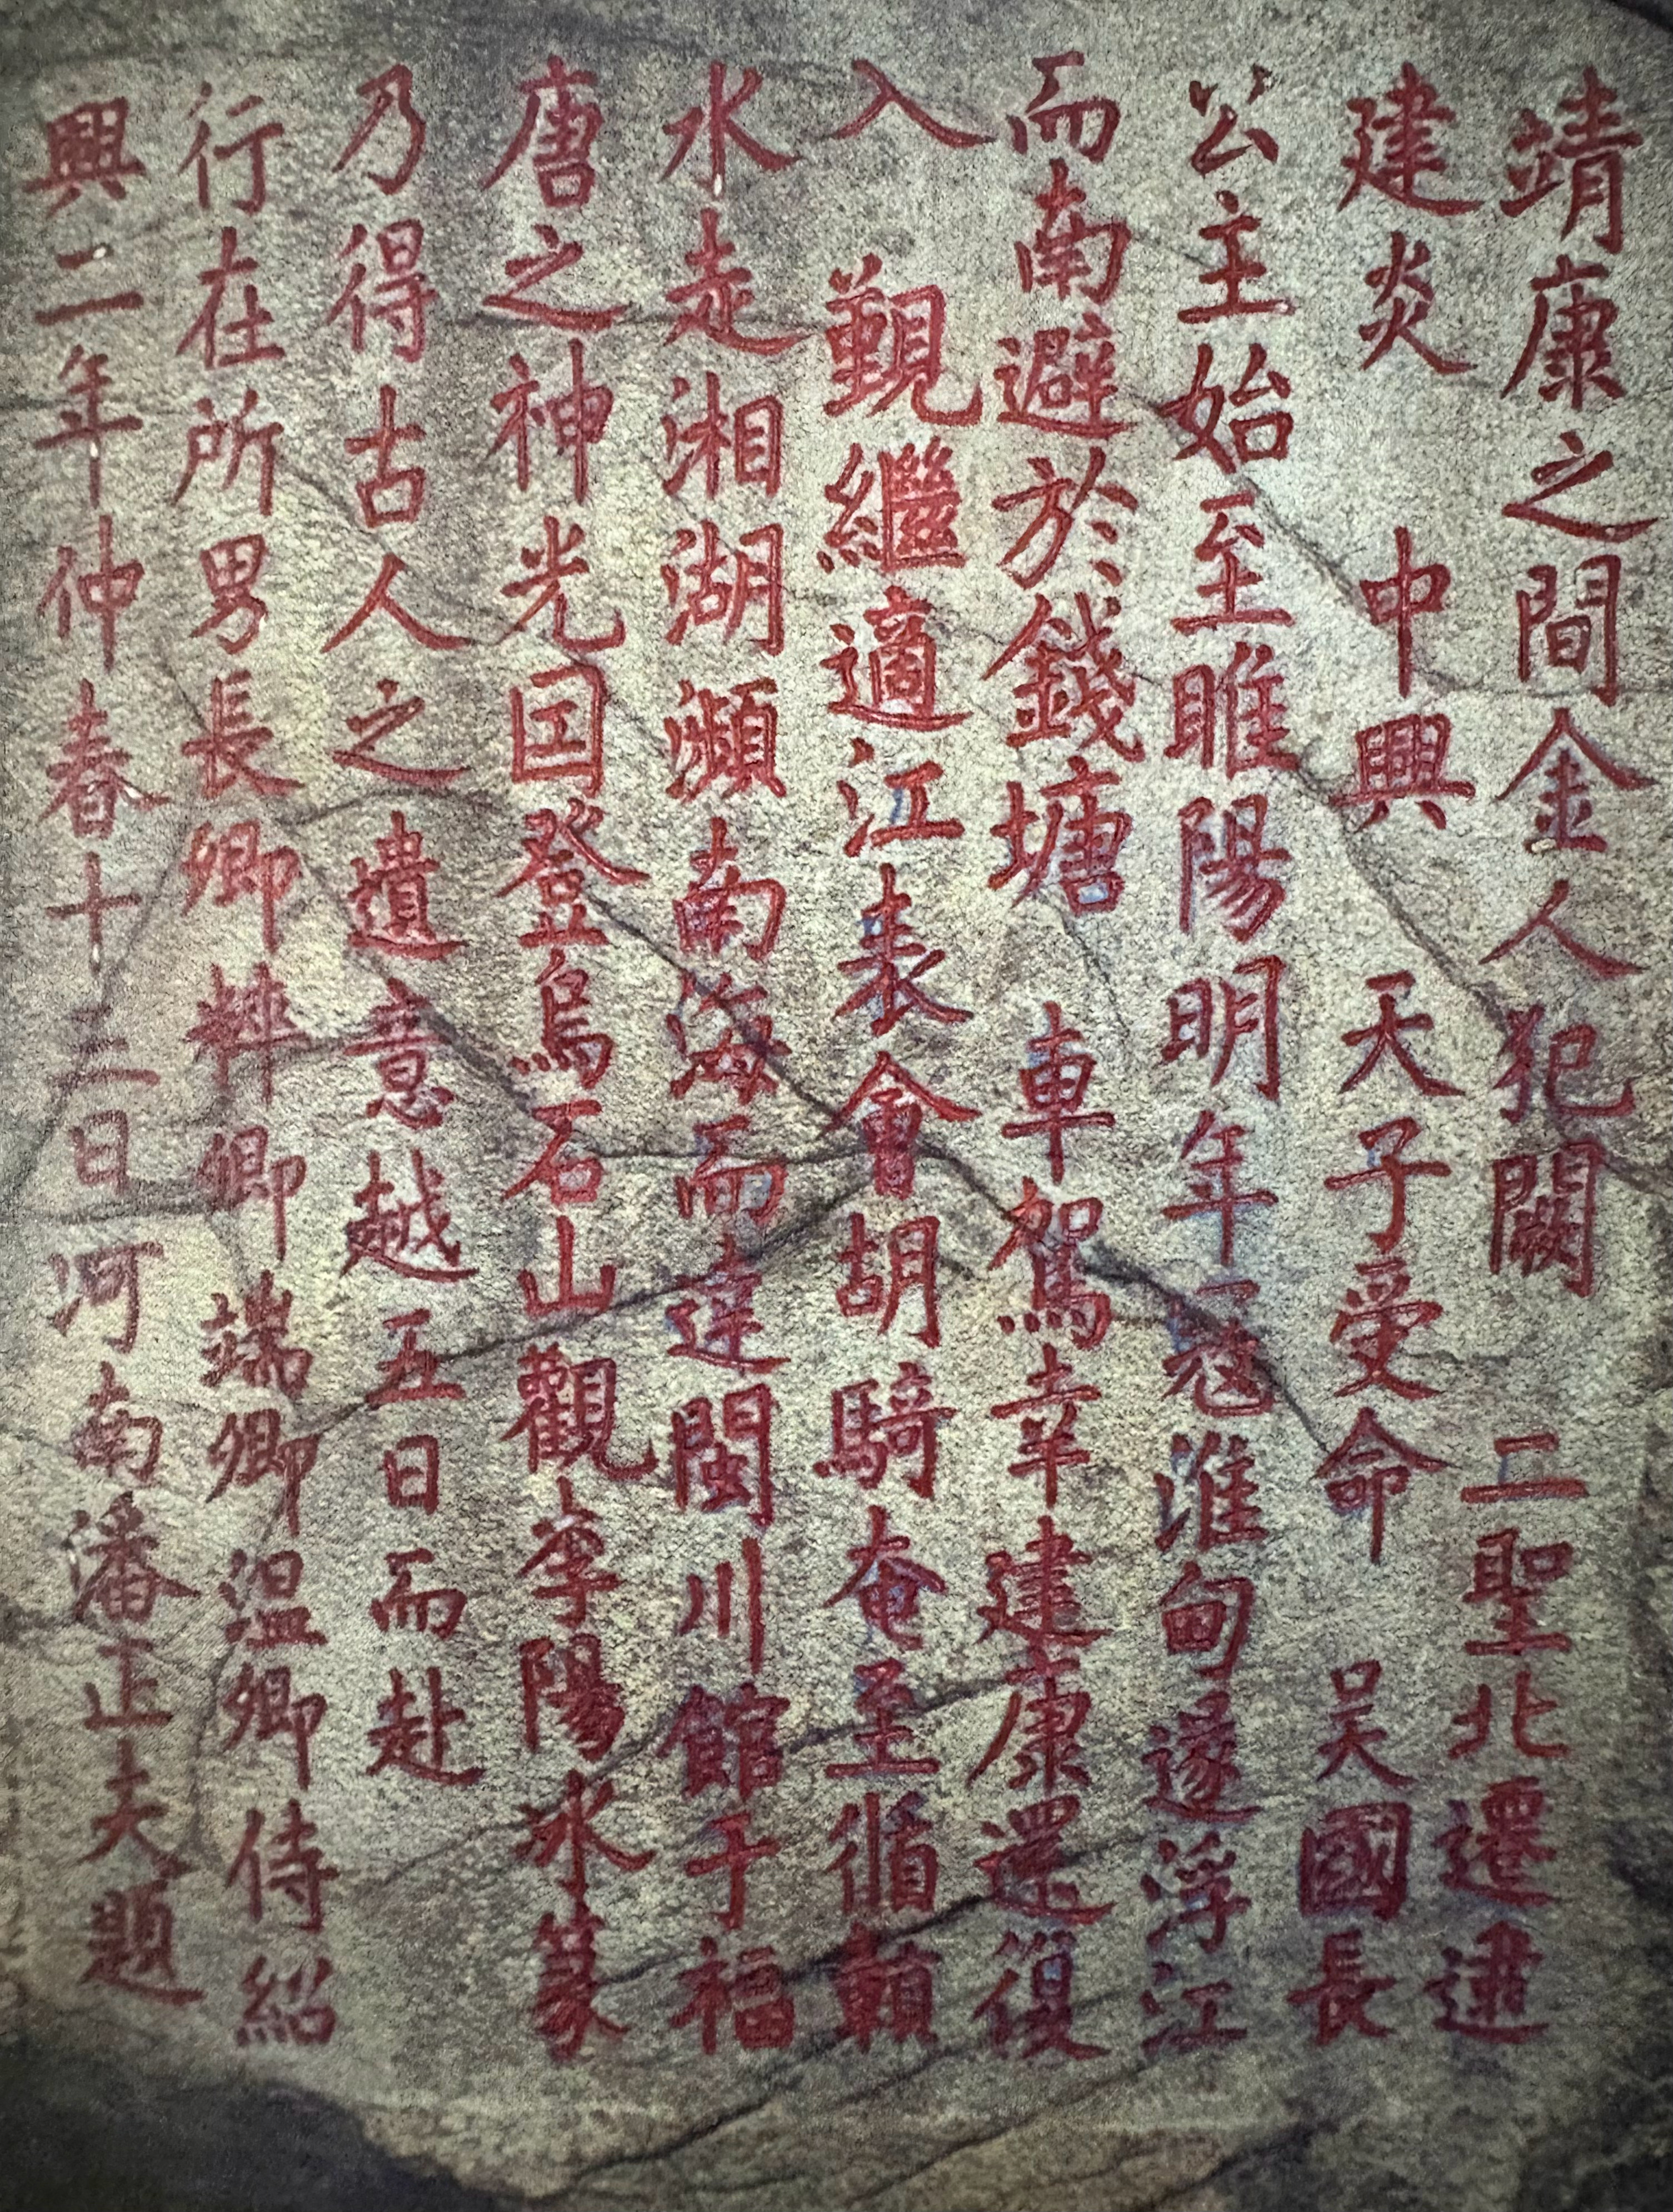 靖康之間金人犯闕 二聖北遷逮
建炎 中興 天子受命 吴國長
公主始至睢陽明年寇淮甸遂浮江
而南避於錢塘 車駕幸建康還復
入 覲繼適江表會胡騎奄至循贛
水走湘湖瀕南海而達閩川館于福
唐之神光囯登烏石山觀李陽冰篆
乃得古人之遺意越五日而赴
行在所男長卿粹卿端卿温卿侍紹
興二年仲春十三日河南潘正夫題